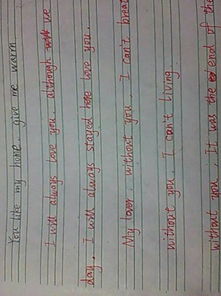 You like my home, give me warm
I will always love you although we
day. I will always stayed here love you.
My lover, without you I can't
without you. I can't living.
without you. It was the end of the